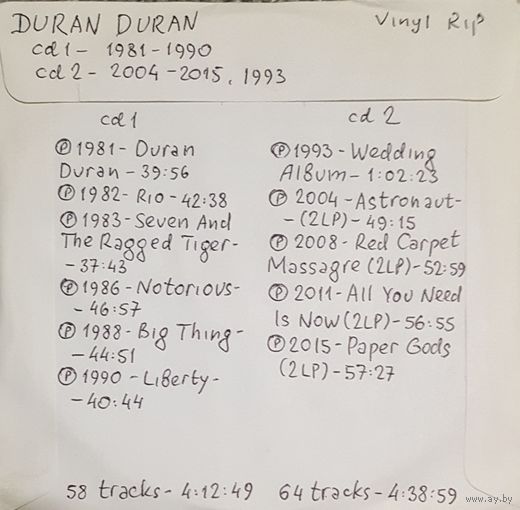 DURAN DURAN
Vinyl Rip
cd 1 - 1981-1990
cd 2 - 2004-2015, 1993
cd 1
Ⓟ 1981 - Duran
Duran - 39:56
Ⓟ 1982 - Rio - 42:38
Ⓟ 1983 - Seven And
The Ragged Tiger -
- 37:43
Ⓟ 1986 - Notorious -
- 46:57
Ⓟ 1988 - Big Thing -
- 44:51
Ⓟ 1990 - Liberty -
- 40:44
58 tracks - 4:12:49
cd 2
Ⓟ 1993 - Wedding
Album - 1:02:23
Ⓟ 2004 - Astronaut -
- (2LP) - 49:15
Ⓟ 2008 - Red Carpet
Massagre (2LP) - 52:59
Ⓟ 2011 - All You Need
Is Now (2LP) - 56:55
Ⓟ 2015 - Paper Gods
(2LP) - 57:27
64 tracks - 4:38:59
www.ay.by